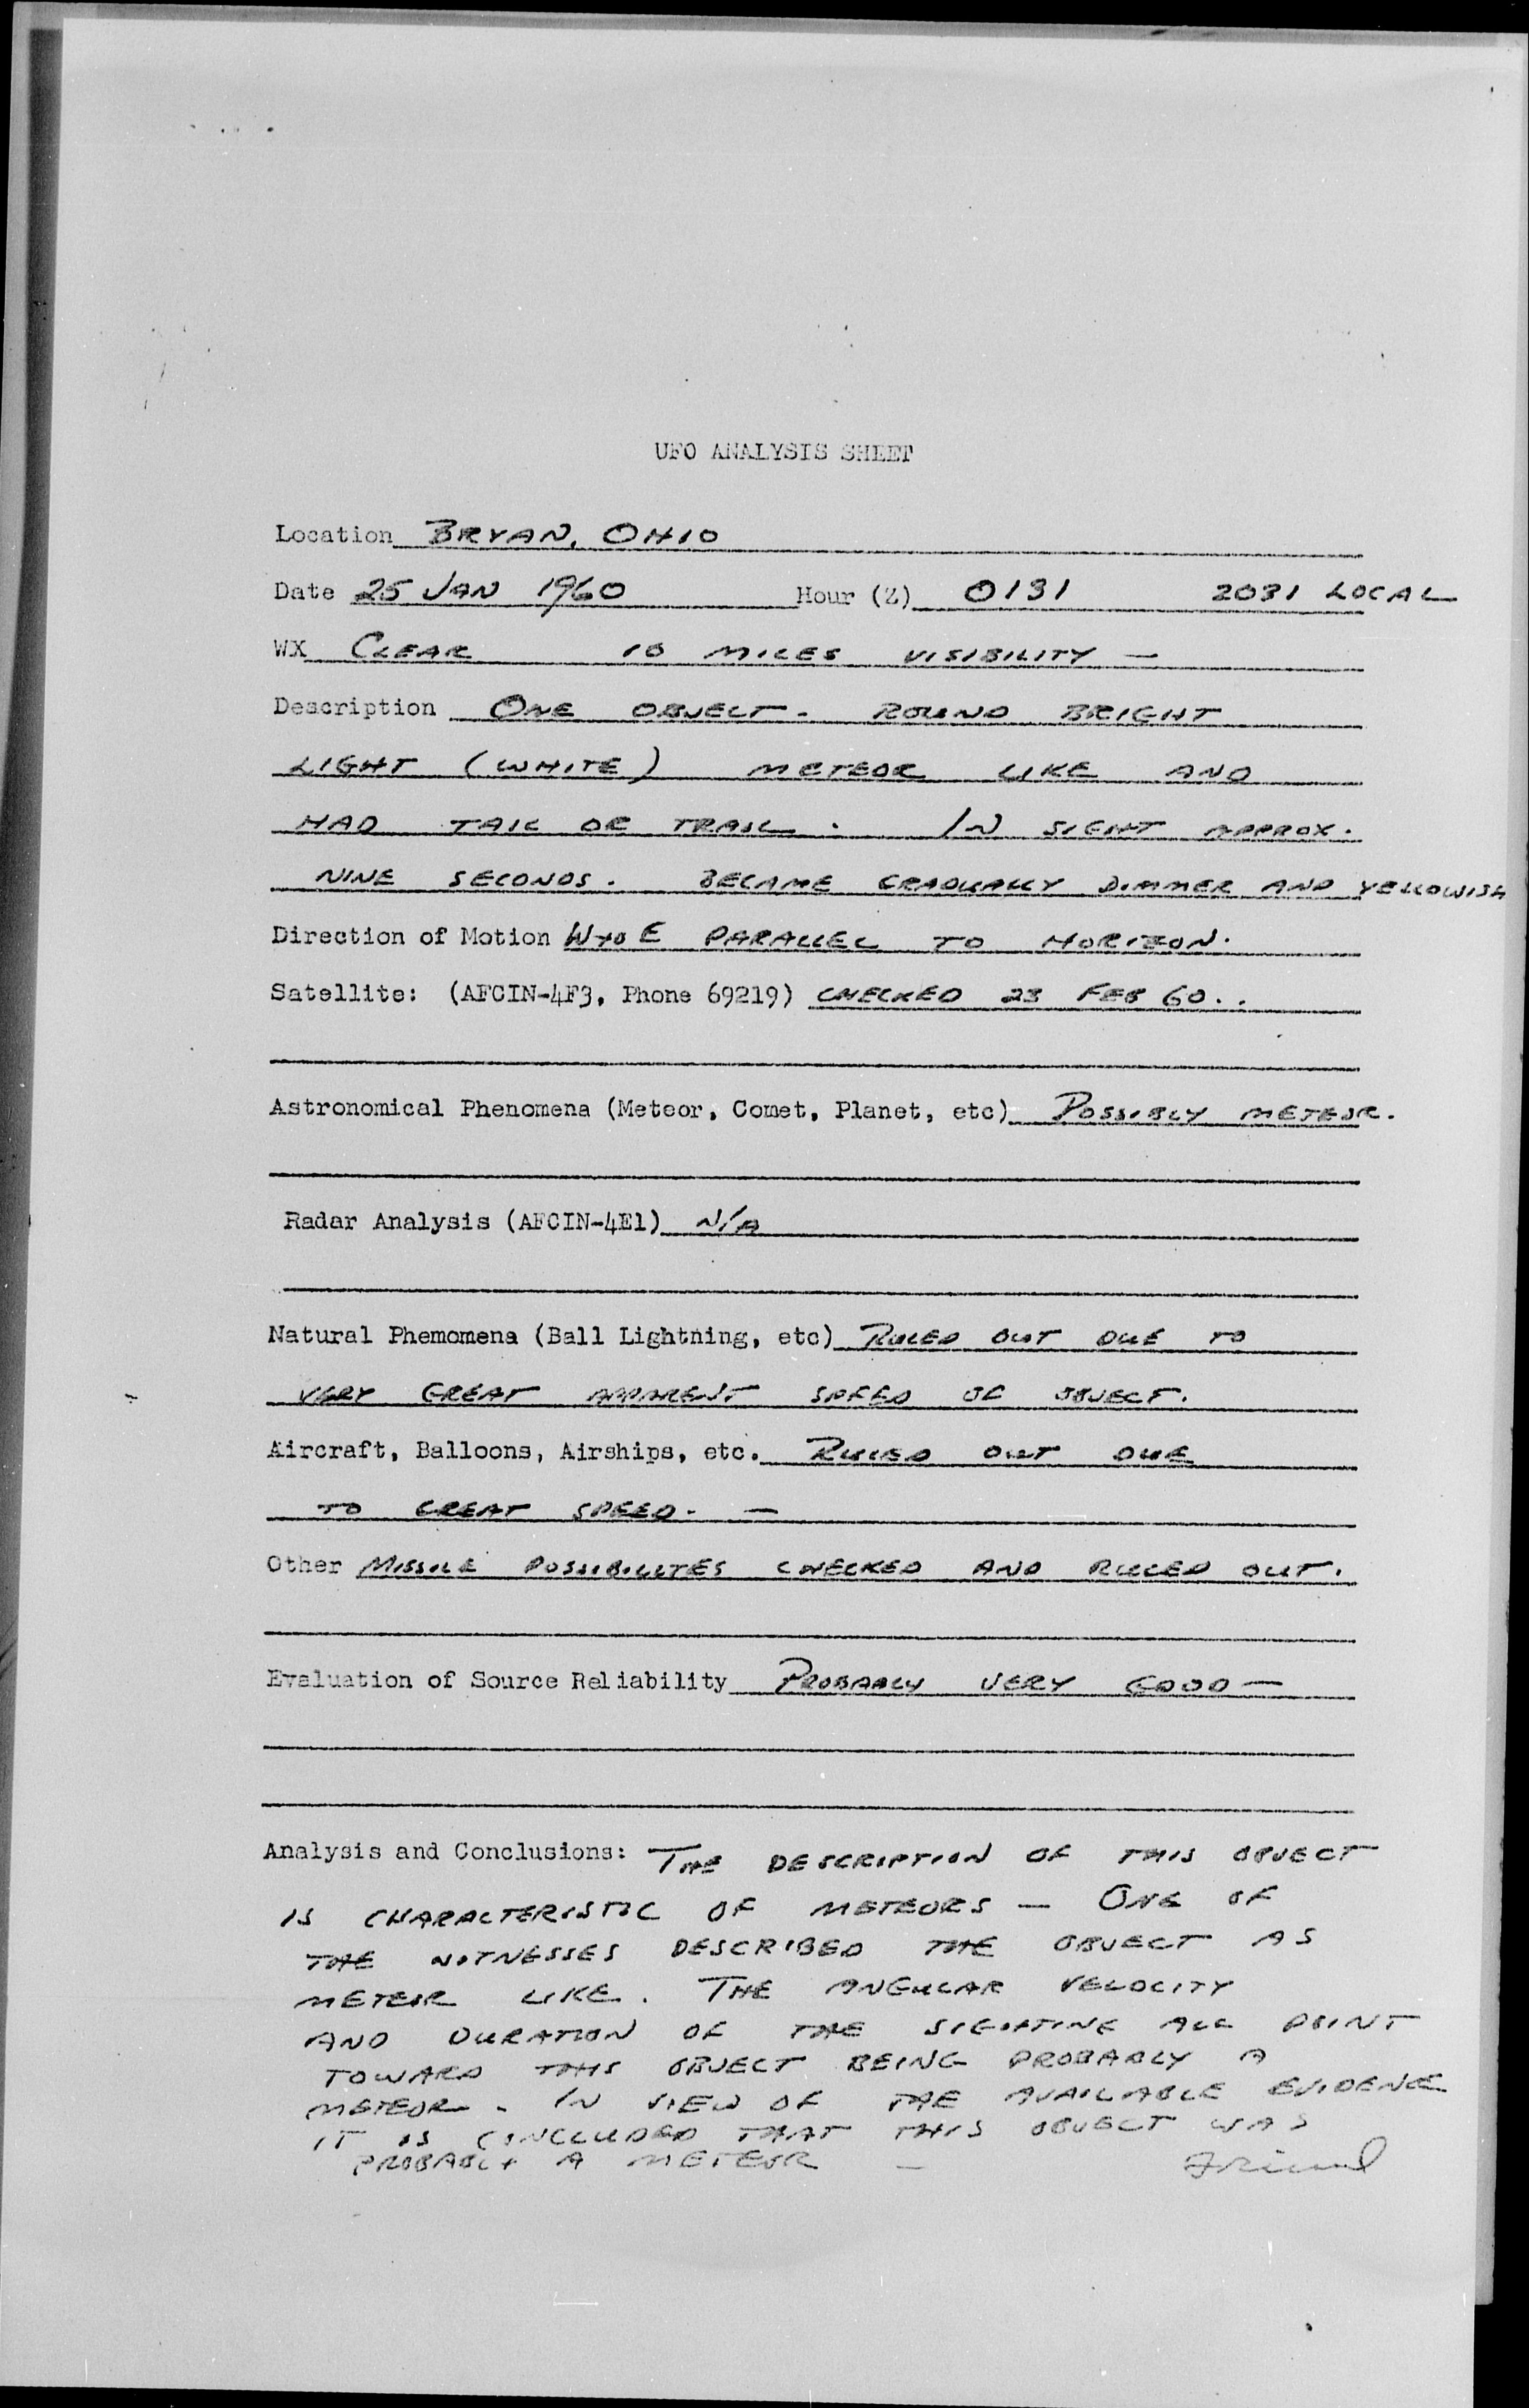 UFO ANALYSIS SHEET
Location BRYAN, OHIO
Date 25 JAN 1960 Hour (Z) 0131 2031 LOCAL
WX CLEAR 10 MILES VISIBILITY —
Description ONE OBJECT - ROUND BRIGHT
LIGHT (WHITE) METEOR LIKE AND
HAD TAIL OR TRAIL. IN SIGHT APPROX.
NINE SECONDS. BECAME GRADUALLY DIMMER AND YELLOWISH
Direction of Motion W to E PARALLEL TO HORIZON.
Satellite: (AFCIN-4F3, Phone 69219) CHECKED 23 FEB 60..
Astronomical Phenomena (Meteor, Comet, Planet, etc) POSSIBLY METEOR.
Radar Analysis (AFCIN-4E1) N/A
Natural Phemomena (Ball Lightning, etc) RULED OUT DUE TO
VERY GREAT APPARENT SPEED OF OBJECT.
Aircraft, Balloons, Airships, etc. RULED OUT DUE
TO GREAT SPEED. —
Other MISSILE POSSIBILITES CHECKED AND RULED OUT.
Evaluation of Source Reliability PROBABLY VERY GOOD —
Analysis and Conclusions: THE DESCRIPTION OF THIS OBJECT
IS CHARACTERISTIC OF METEORS — ONE OF
THE WITNESSES DESCRIBED THE OBJECT AS
METEOR LIKE. THE ANGULAR VELOCITY
AND DURATION OF THE SIGHTING ALL POINT
TOWARD THIS OBJECT BEING PROBABLY A
METEOR - IN VIEW OF THE AVAILABLE EVIDENCE
IT IS CONCLUDED THAT THIS OBJECT WAS
PROBABLY A METEOR — Friend